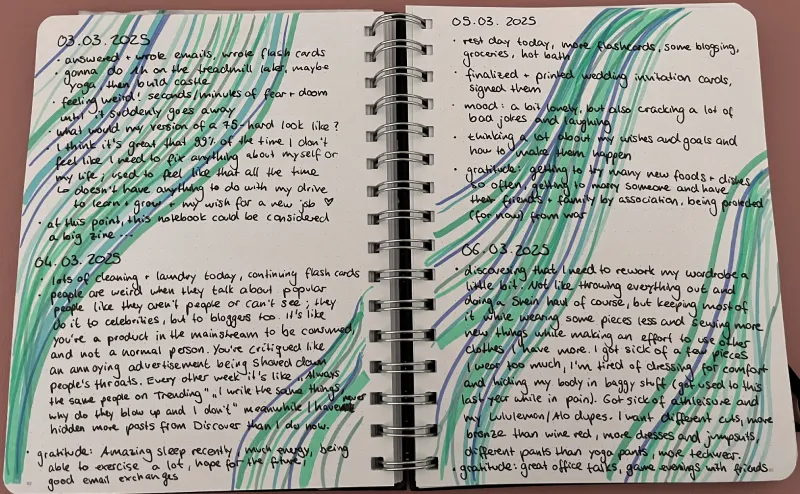 03.03.2025
• answered + wrote emails, wrote flash cards
• gonna do 1h on the treadmill later, maybe
yoga, then build castle
• feeling weird! seconds/minutes of fear + doom
until it suddenly goes away
• what would my version of a 75-hard look like?
• I think it's great that 99% of the time I don't
feel like I need to fix anything about myself or
my life; used to feel like that all the time
↳ doesn't have anything to do with my drive
to learn + grow + my wish for a new job ♡
• at this point, this notebook could be considered
a big zine...
04.03.2025
• lots of cleaning + laundry today, continuing flash cards
• people are weird when they talk about popular
people like they aren't people or can't see; they
do it to celebrities, but to bloggers too. it's like
you're a product in the mainstream to be consumed,
and not a normal person. You're critiqued like
an annoying advertisement being shoved down
people's throats. Every other week it's like "Always
the same people on Trending", "I write the same things,
why do they blow up and I don't" meanwhile I have never
hidden more posts from Discover than I do now.
• gratitude: Amazing sleep recently, much energy, being
able to exercise a lot, hope for the future,
good email exchanges
05.03.2025
• rest day today, more flashcards, some blogging,
groceries, hot bath
• finalized + printed wedding invitation cards,
signed them
• mood: a bit lonely, but also cracking a lot of
bad jokes and laughing
• thinking a lot about my wishes and goals and
how to make them happen
• gratitude: getting to try many new foods + dishes
so often, getting to marry someone and have
their friends + family by association, being protected
(for now) from war
06.03.2025
• discovering that I need to rework my wardrobe a
little bit. Not like throwing everything out and
doing a Shein haul of course, but keeping most of
it while wearing some pieces less and sewing more
new things while making an effort to use other
clothes I have more. I got sick of a few pieces
I wear too much, I'm tired of dressing for comfort
and hiding my body in baggy stuff (got used to this
last year while in pain). Got sick of athleisure and
my Lululemon/Alo dupes. I want different cuts, more
bronze than wine red, more dresses and jumpsuits,
different pants than yoga pants, more techwear.
• gratitude: great office talks, game evenings with friends